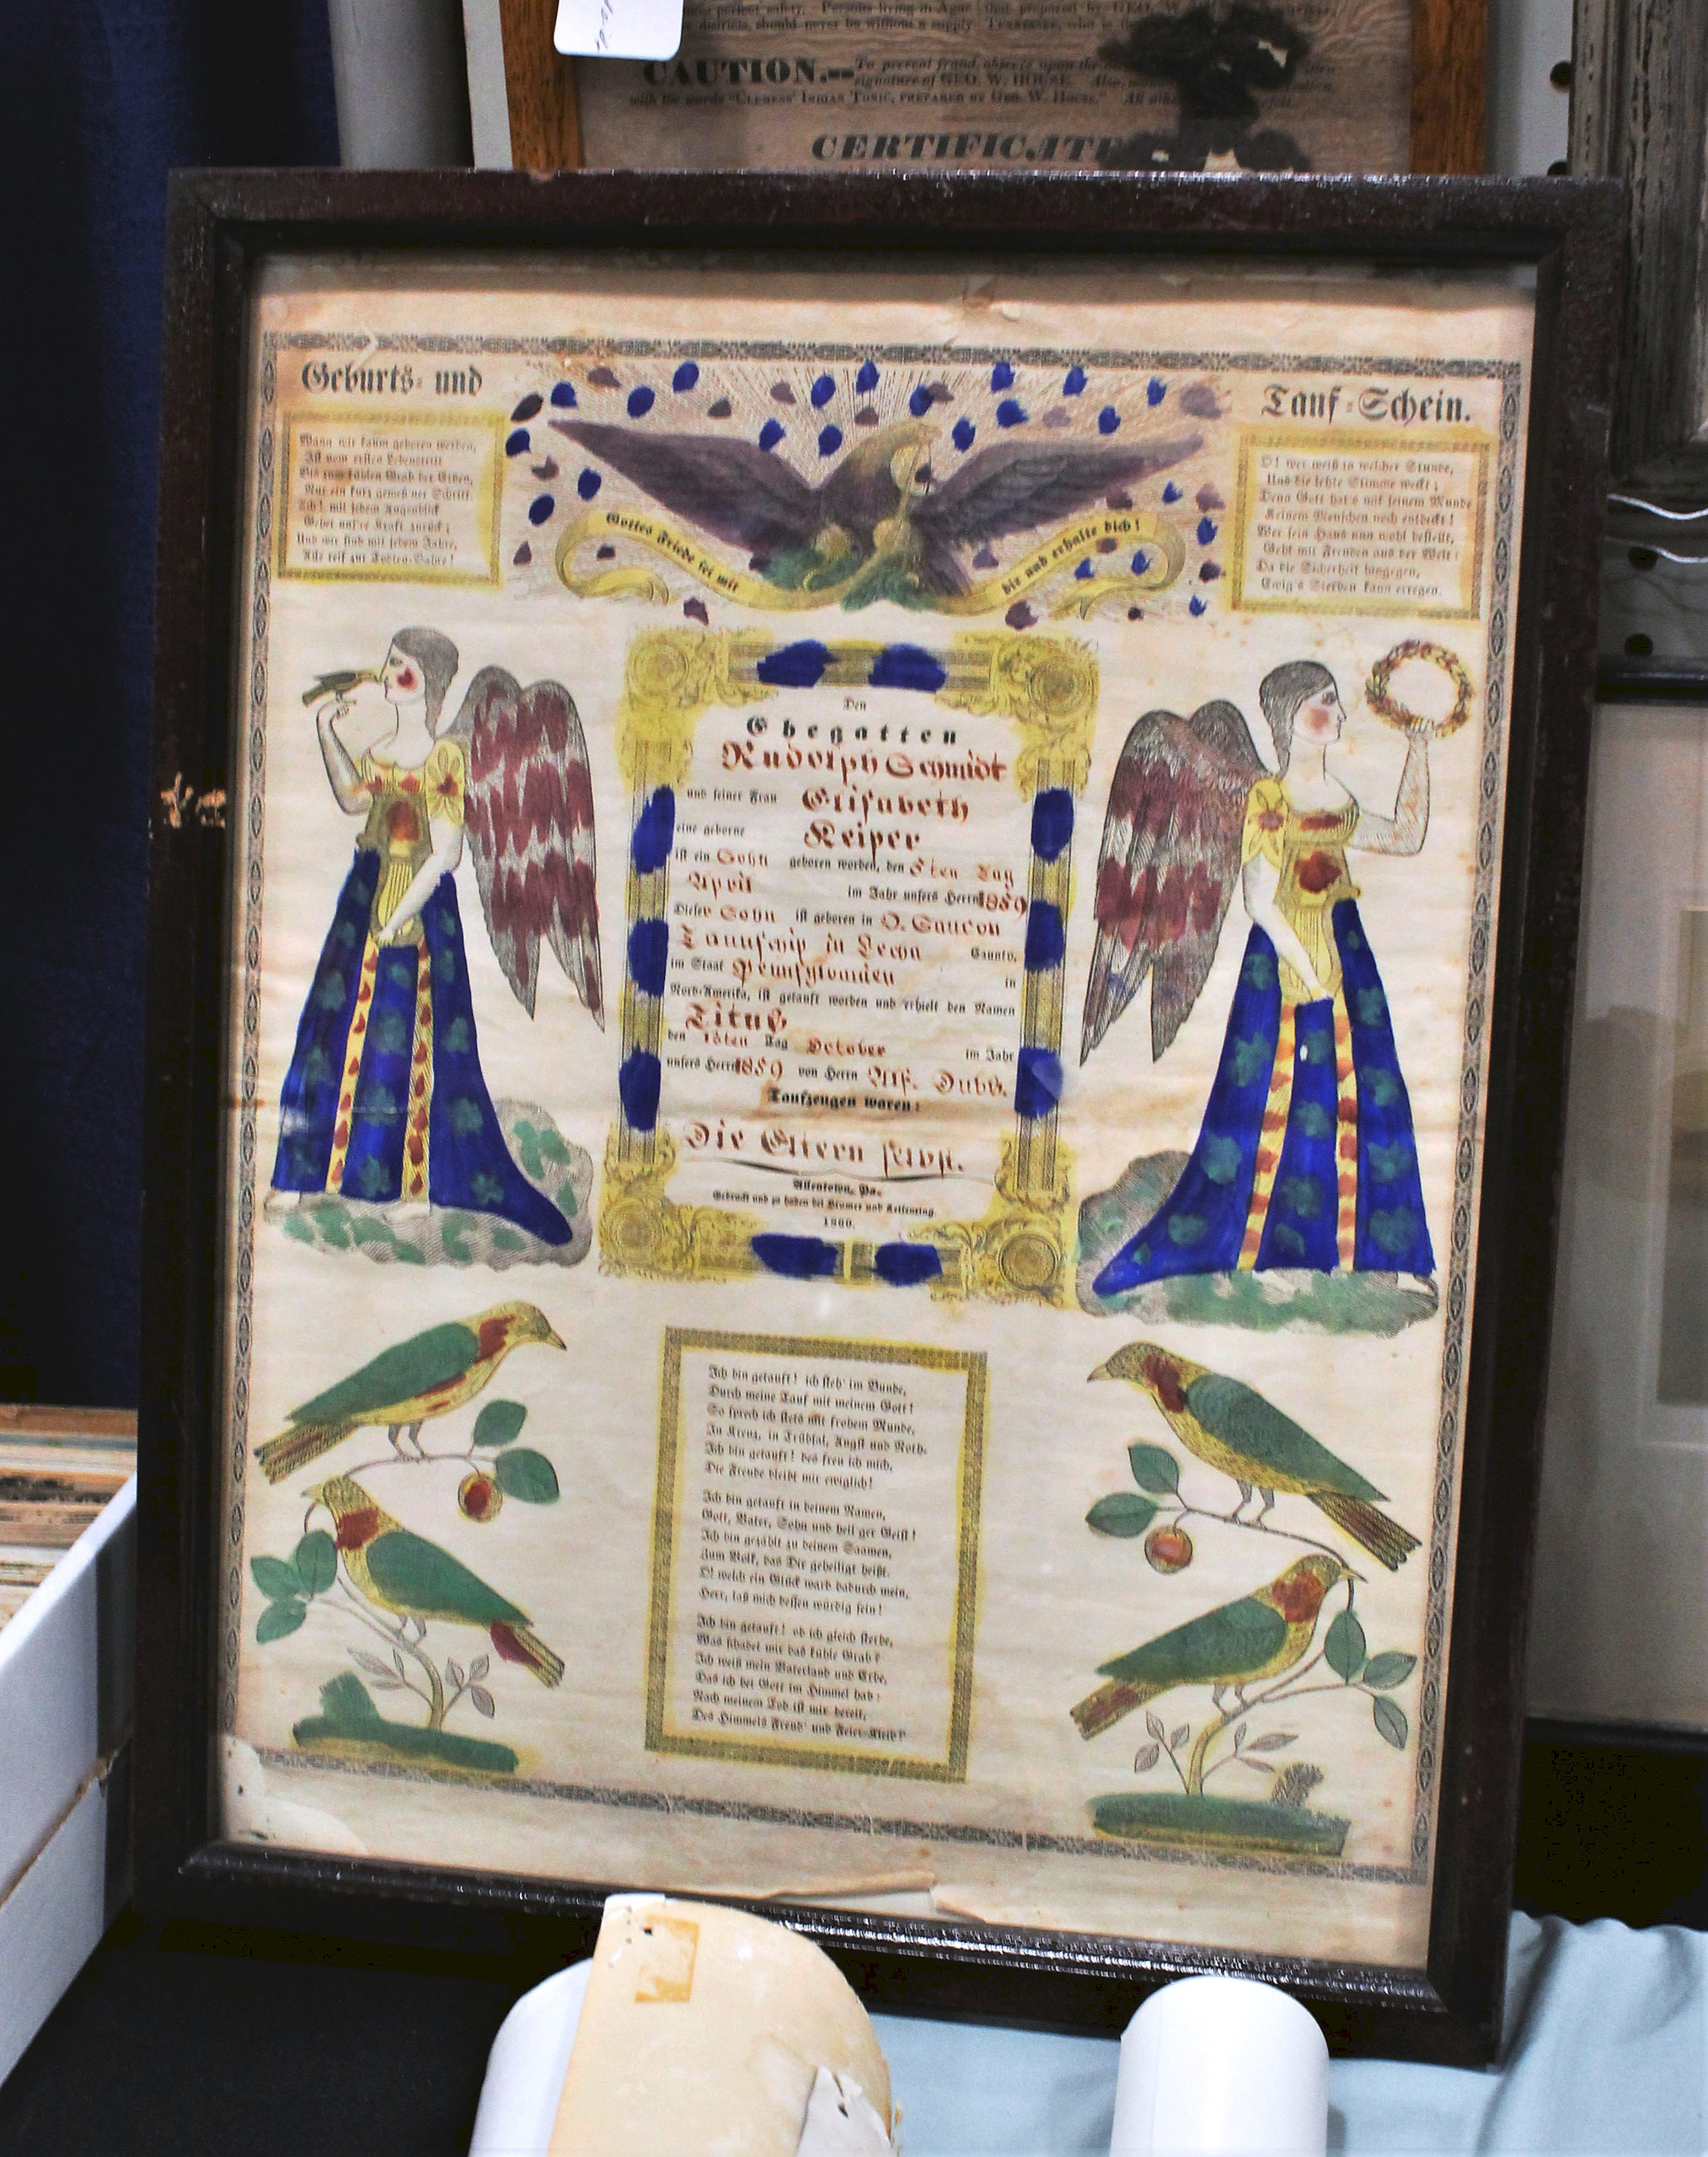 perfect safety. Persons living in Ague
districts, should never be without a supply
CAUTION.—To prevent fraud, observe upon the
signature of GEO. W. HOUSE.
with the words "Clemens' Indian Tonic, prepared by Geo. W. House."
CERTIFICATE
Geburts- und
Tauf-Schein.
Wann wir kaum geboren werden,
Ist vom ersten Lebenstritt
Bis zum kühlen Grab der Erden,
Nur ein kurz gemeß'ner Schritt.
Ach! mit jedem Augenblick
Gehet uns're Kraft zurück;
Und wir sind mit jedem Jahre,
Alle reif zur Todten-Bahre!
Gottes Friede sei mit
dir und erhalte dich!
O! wer weiß in welcher Stunde,
Uns die letzte Stimme weckt;
Denn Gott hat's mit seinem Munde
Keinem Menschen noch entdeckt!
Wer sein Haus nun wohl bestellt,
Geht mit Freuden aus der Welt;
Da die Sicherheit hingegen,
Ewig's Sterben kann erregen.
Den
Ehegatten
Rudolph Schmidt
und seiner Frau Elisabeth
eine geborne Keiper
ist ein Sohn geboren worden, den 5ten Tag
April im Jahr unsers Herrn 1859
Dieser Sohn ist geboren in O. Saucon
Taunschip in Lecha Caunty,
im Staat Pennsylvanien in
Nord-Amerika, ist getauft worden und erhielt den Namen
Titus
den 16ten Tag October im Jahr
unsers Herrn 1859 von Herrn Alf. Dubs.
Taufzeugen waren:
Die Eltern selbst.
Allentown, Pa.
Gedruckt und zu haben bei Blumer und Leisenring.
1860.
Ich bin getauft! ich steh' im Bunde,
Durch meine Tauf mit meinem Gott!
So sprech ich stets mit frohem Munde,
In Kreuz, in Trübsal, Angst und Noth.
Ich bin getauft! des freu ich mich,
Die Freude bleibt mir ewiglich!
Ich bin getauft in deinem Namen,
Gott, Vater, Sohn und heil'ger Geist!
Ich bin gezählt zu deinem Saamen,
Zum Volk, das Dir geheiligt heißt.
O! welch ein Glück ward dadurch mein,
Herr, laß mich dessen würdig sein!
Ich bin getauft! ob ich gleich sterbe,
Was schadet mir das kühle Grab?
Ich weiß mein Vaterland und Erbe,
Das ich bei Gott im Himmel hab;
Nach meinem Tod ist mir bereit,
Des Himmels Freud' und Feier-Kleid?